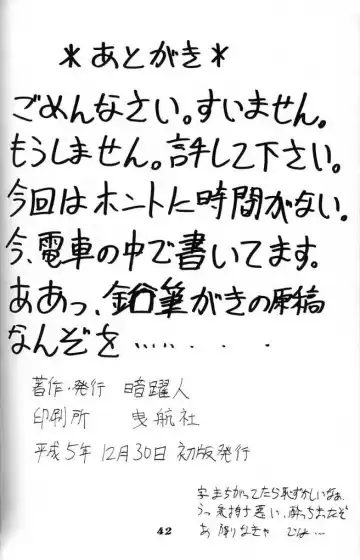 *あとがき*
ごめんなさい。すいません。
もうしません。許して下さい。
今回はホントに時間がない。
今、電車の中で書いてます。
ああっ、鉛筆がきの原稿
なんぞを……・・・
著作・発行 暗躍人
印刷所 曳航社
平成5年12月30日 初版発行
字まちがってたら恥ずかしいなぁ
うっ気持ち悪い、酔っちまったぞ
あ 降りなきゃ では…
42